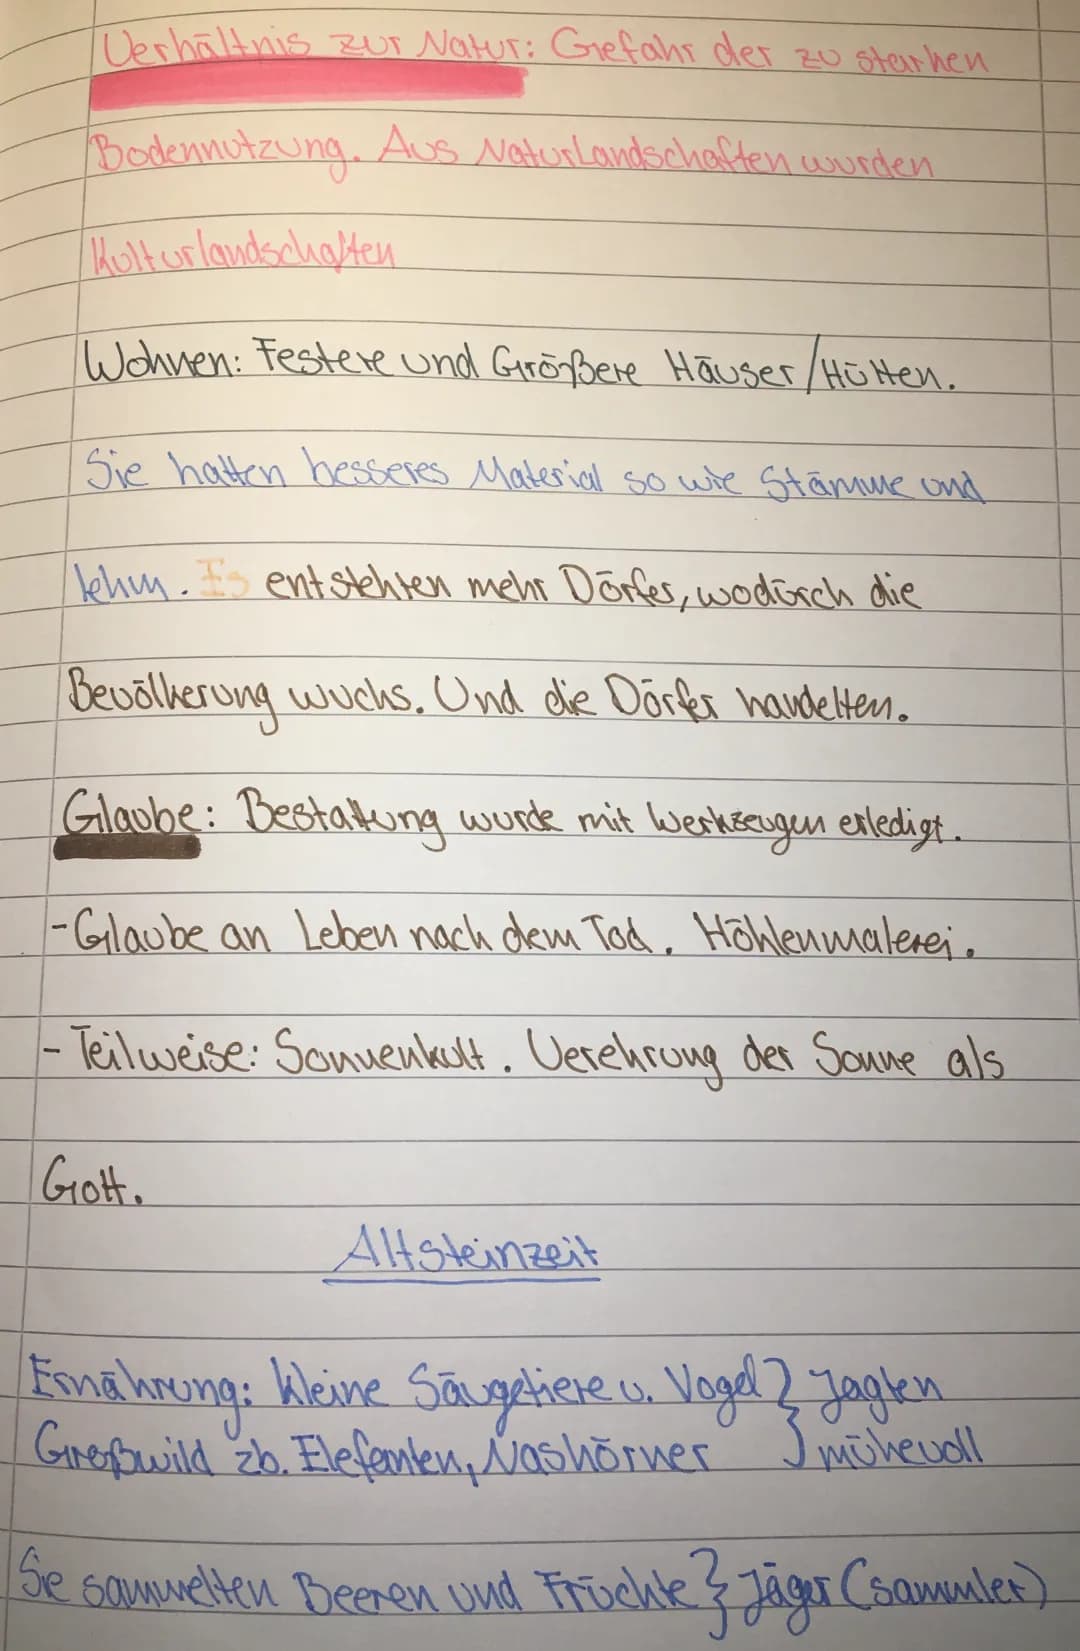 Verhältnis zur Natur: Gefahr der zu starken
Bodennutzung. Aus Naturlandschaften wurden
Kulturlandschaften
Wohnen: Festere und Größere Häuser/Hütten.
Sie hatten besseres Material so wie Stämme und
lehm. Es entstehten mehr Dörfer, wodürch die
Bevölkerung wuchs. Und die Dörfer handelten.
Glaube: Bestattung wurde mit Werkzeugen erledigt.
- Glaube an Leben nach dem Tod. Höhlenmalerei.
- Teilweise: Sonnenkult. Verehrung der Sonne als
Gott.
Altsteinzeit
Ernährung: kleine Säugetiere u. Vogel } Jagten
Großwild zb. Elefanten, Nashörner } mühevoll
Sie sammelten Beeren und Früchte } Jäger (sammler)